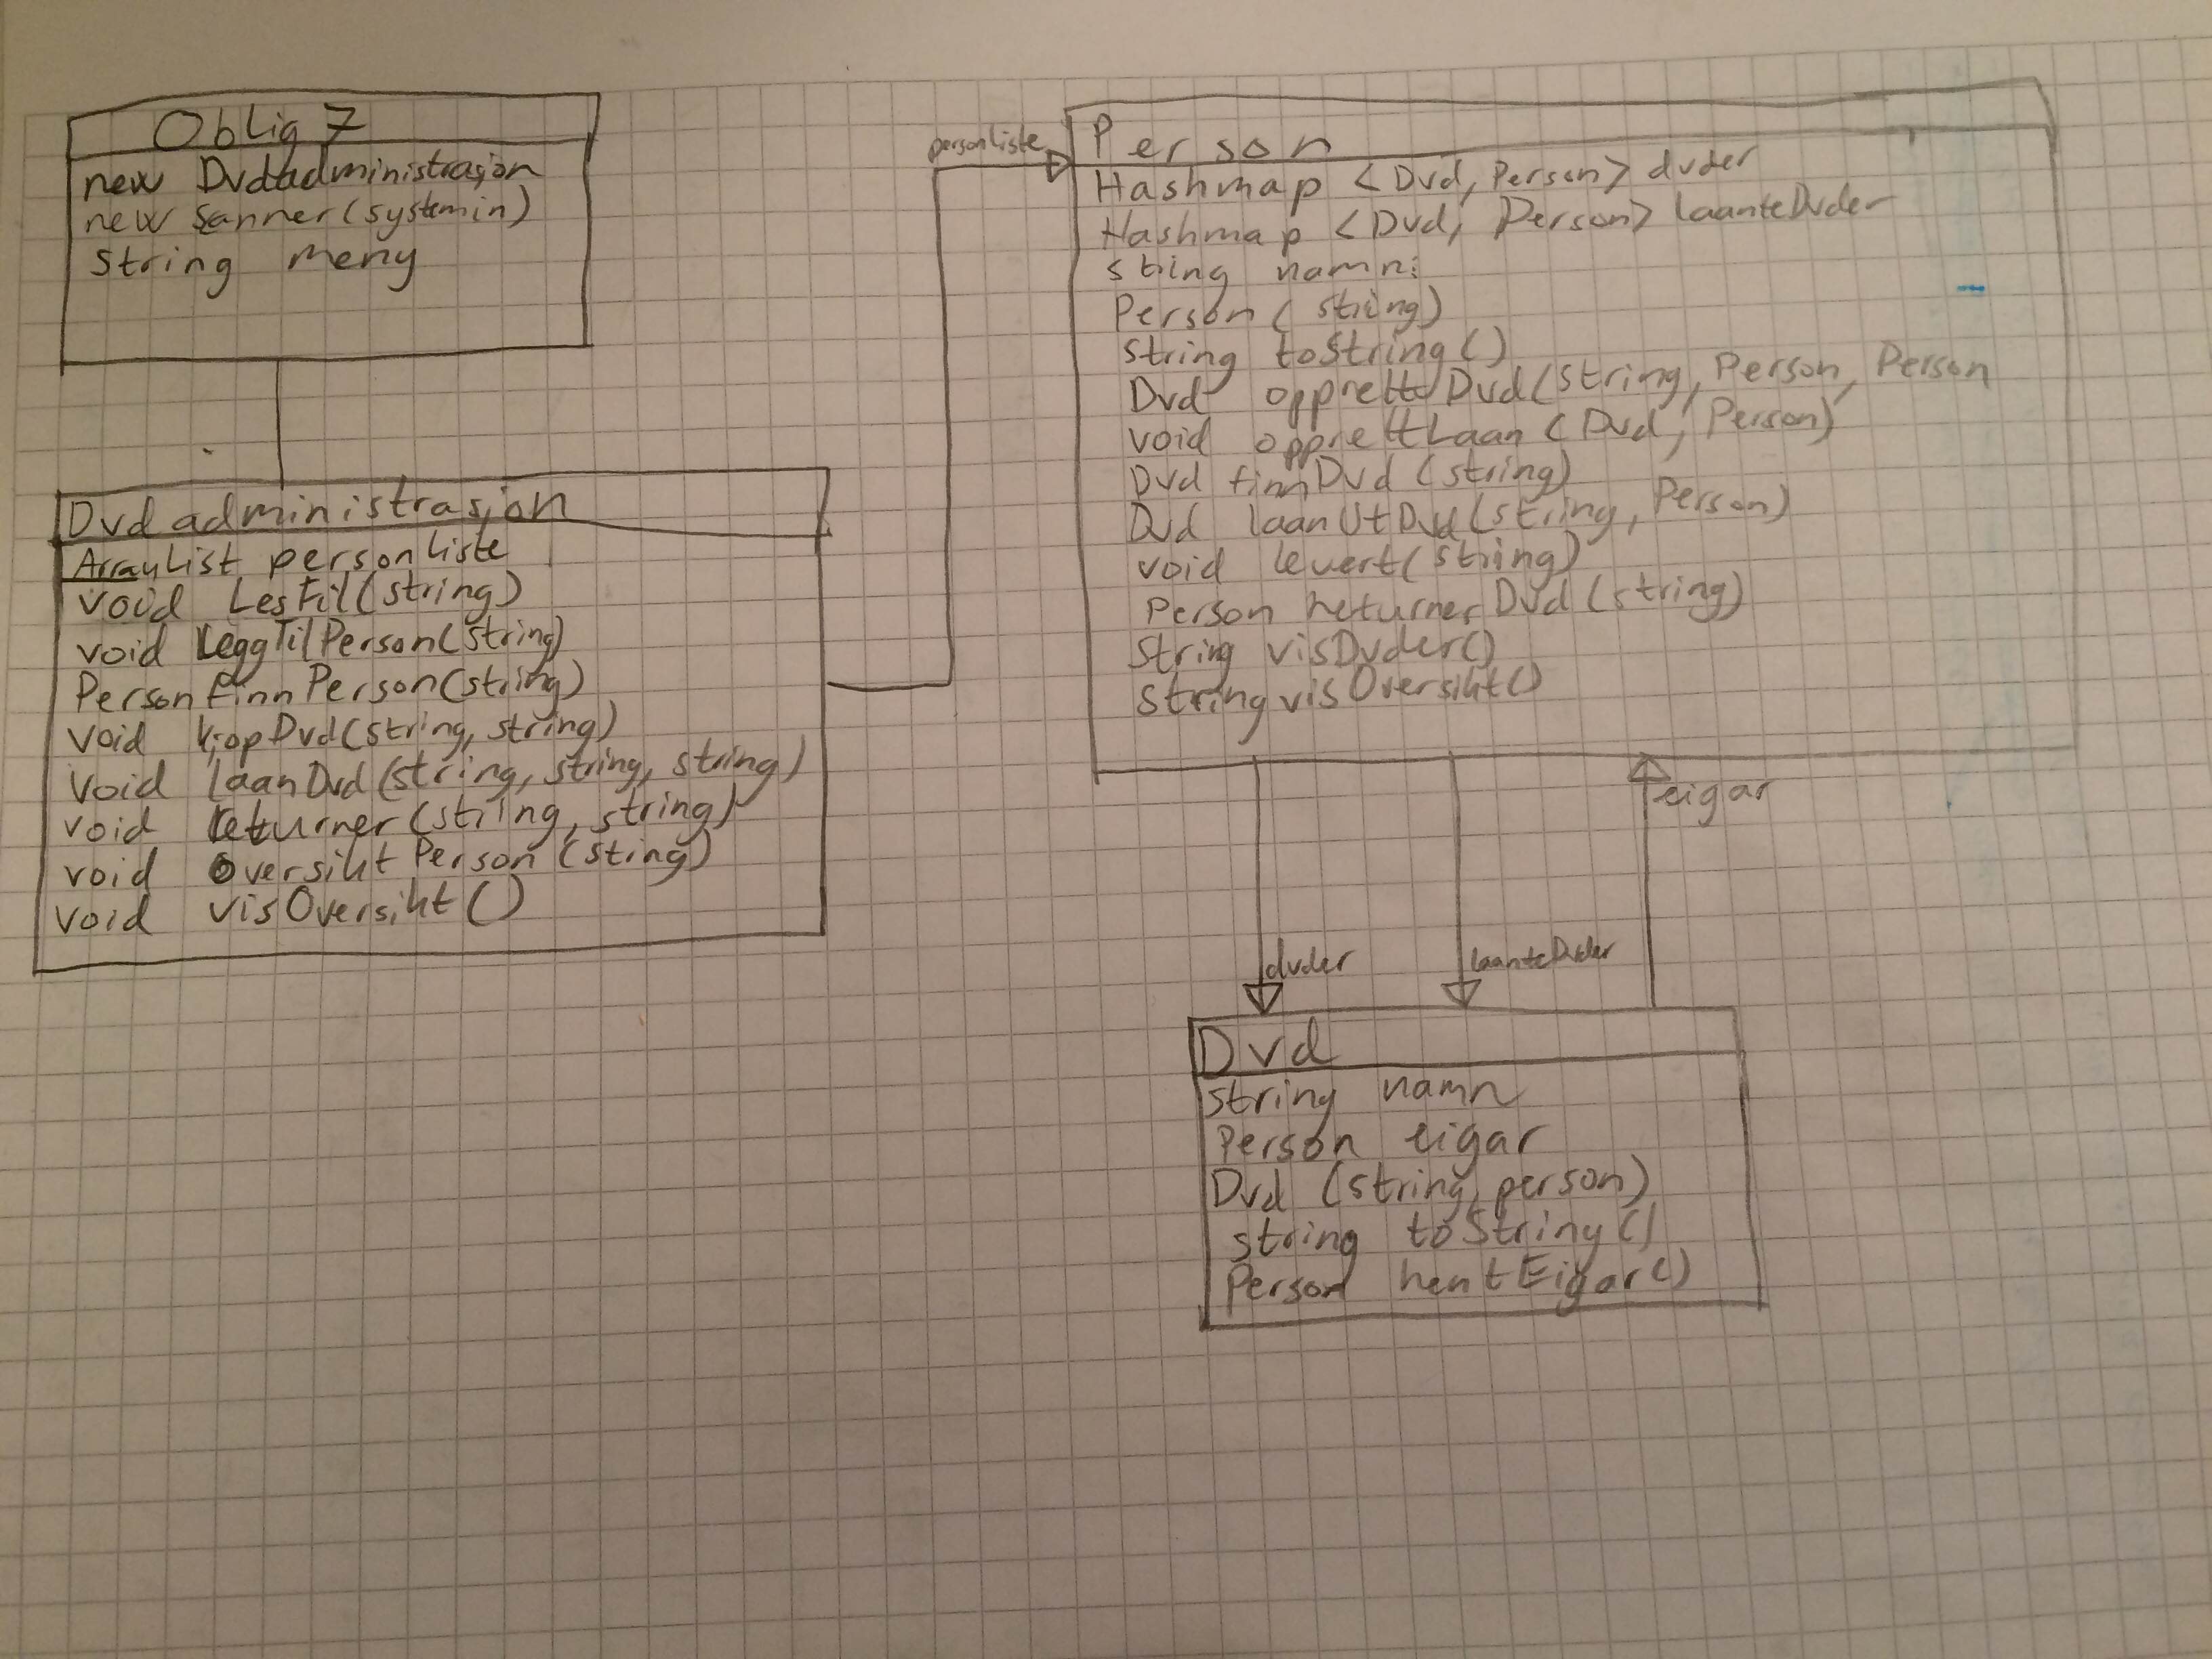 Oblig 7
new Dvdadministrasjon
new Scanner(system.in)
String meny
Dvd administrasjon
ArrayList personliste
void LesFil(string)
void leggTilPerson(String)
Person finnPerson(string)
void kjopDvd(string, string)
void laanDvd(string, string, string)
void returner(string, string)
void oversiktPerson(string)
void visOversikt()
personliste
Person
Hashmap <Dvd, Person> dvder
Hashmap <Dvd, Person> laanteDvder
string namn;
Person(string)
string toString()
Dvd opprettDvd(string, Person, Person
void opprettLaan(Dvd, Person)
Dvd finnDvd(string)
Dvd laanUtDvd(string, Person)
void levert(string)
Person returnerDvd(string)
String visDvder()
String visOversikt()
dvder
laanteDvder
eigar
Dvd
String namn
Person eigar
Dvd (string, person)
string toString()
Person hentEigar()